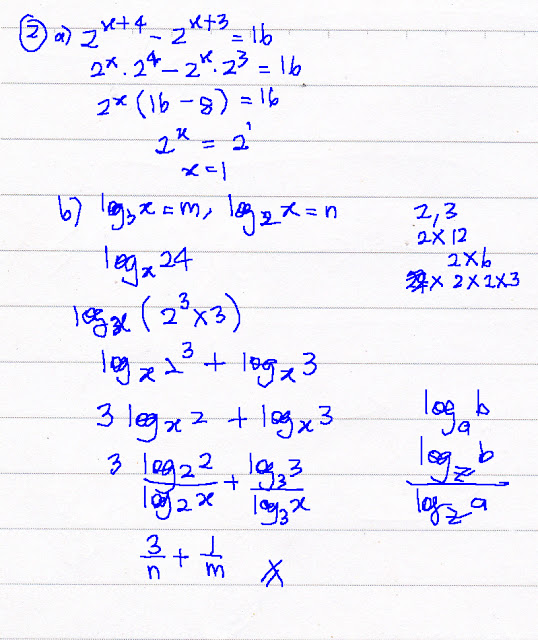 ② a) 2^(x+4) – 2^(x+3) = 16
2^x . 2^4 – 2^x . 2^3 = 16
2^x (16 – 8) = 16
2^x = 2^1
x = 1
b) log₃ x = m, log₂ x = n
log_x 24
log_x (2^3 × 3)
log_x 2^3 + log_x 3
3 log_x 2 + log_x 3
3 (log₂ 2)/(log₂ x) + (log₃ 3)/(log₃ x)
3/n + 1/m
2, 3
2 × 12
2 × 6
× 2 × 2 × 3
log_a b
(log_z b)/(log_z a)